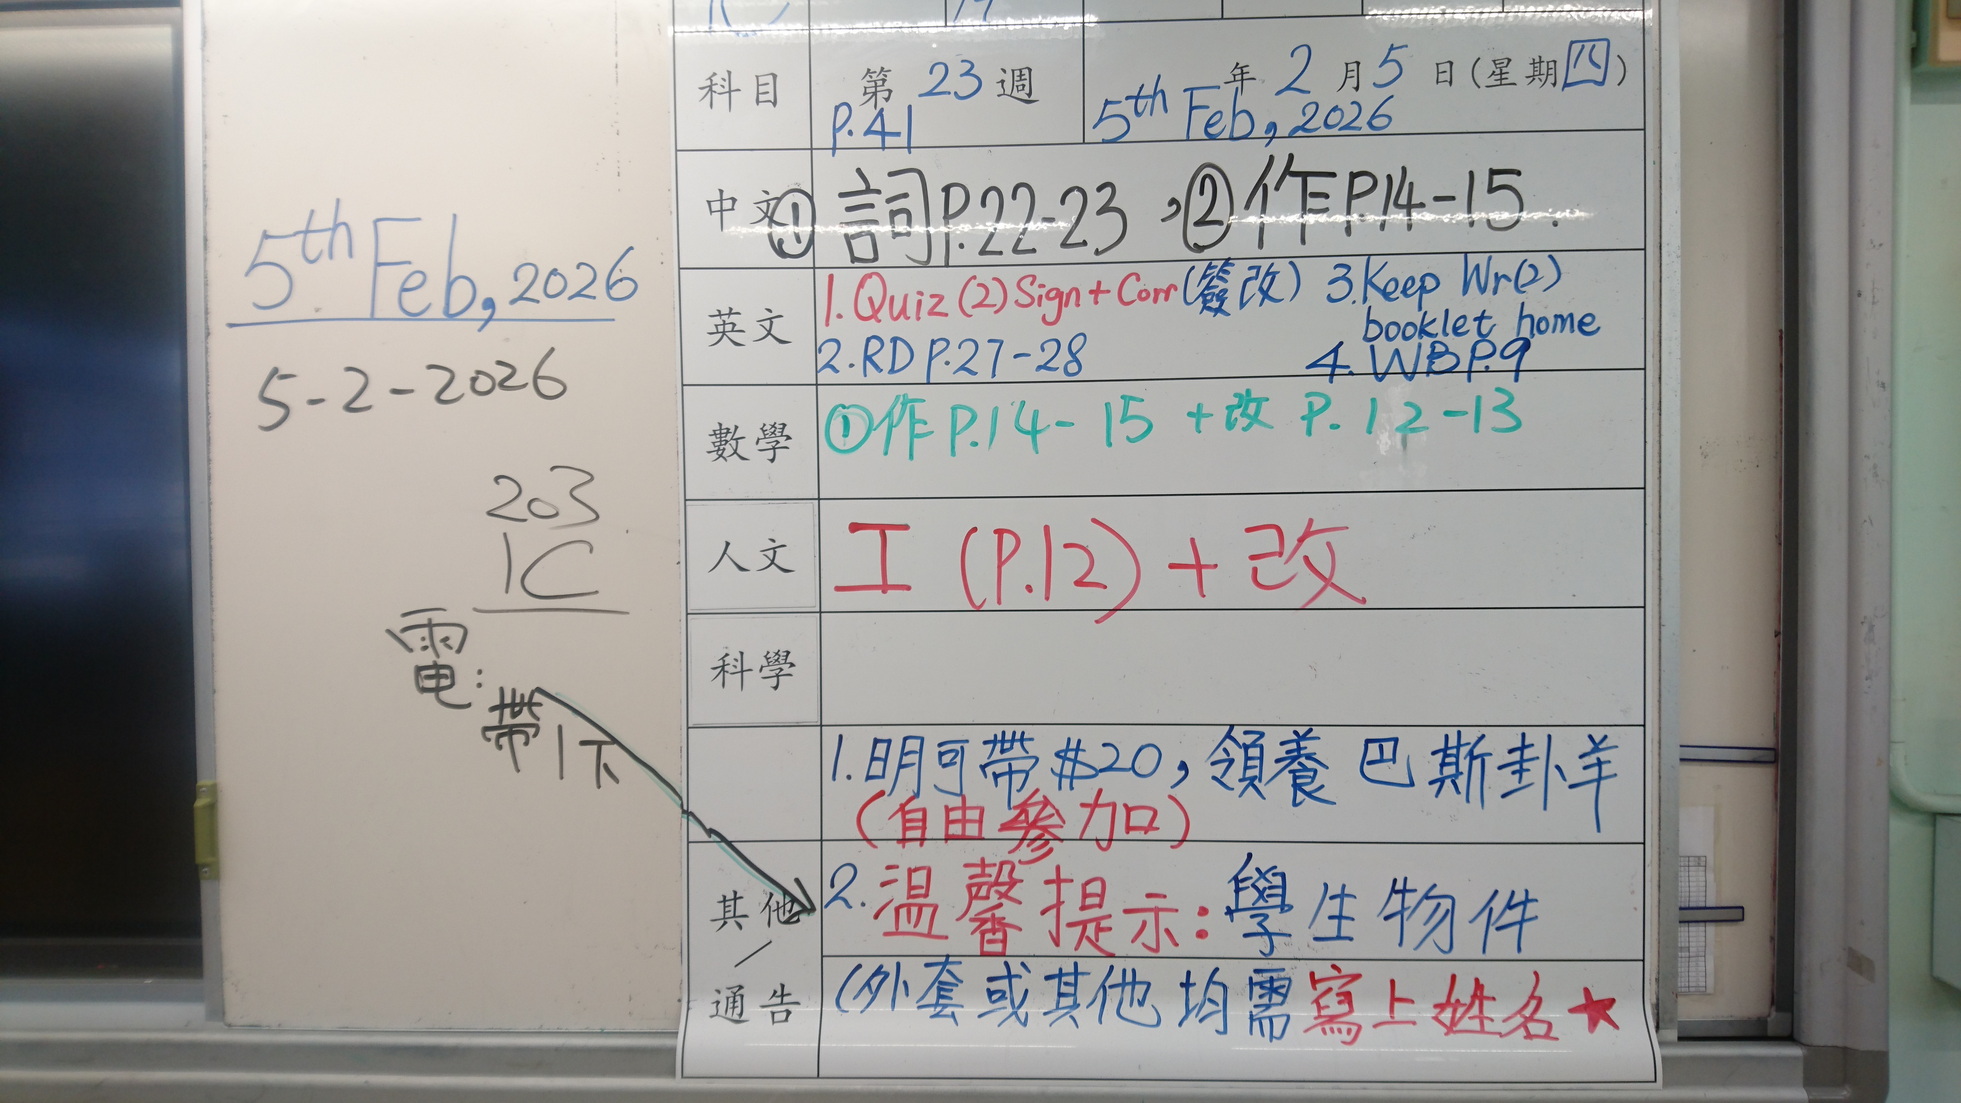 5th Feb, 2026
5-2-2026
203
1C
電:
帶1下
科目 第23週 年2月5日(星期四)
P.41 5th Feb, 2026
中文 ①詞P.22-23，②作P.14-15.
英文 1.Quiz(2)Sign+Corr(簽改) 3.Keep Wr(2)
booklet home
2.RD P.27-28 4.WB P.9
數學 ①作P.14-15 +改 P.12-13
人文 工(P.12)+改
科學
1.明可帶$20，領養巴斯卦羊
(自由參加)
其他 2.溫馨提示:學生物件
／
通告 (外套或其他均需寫上姓名★